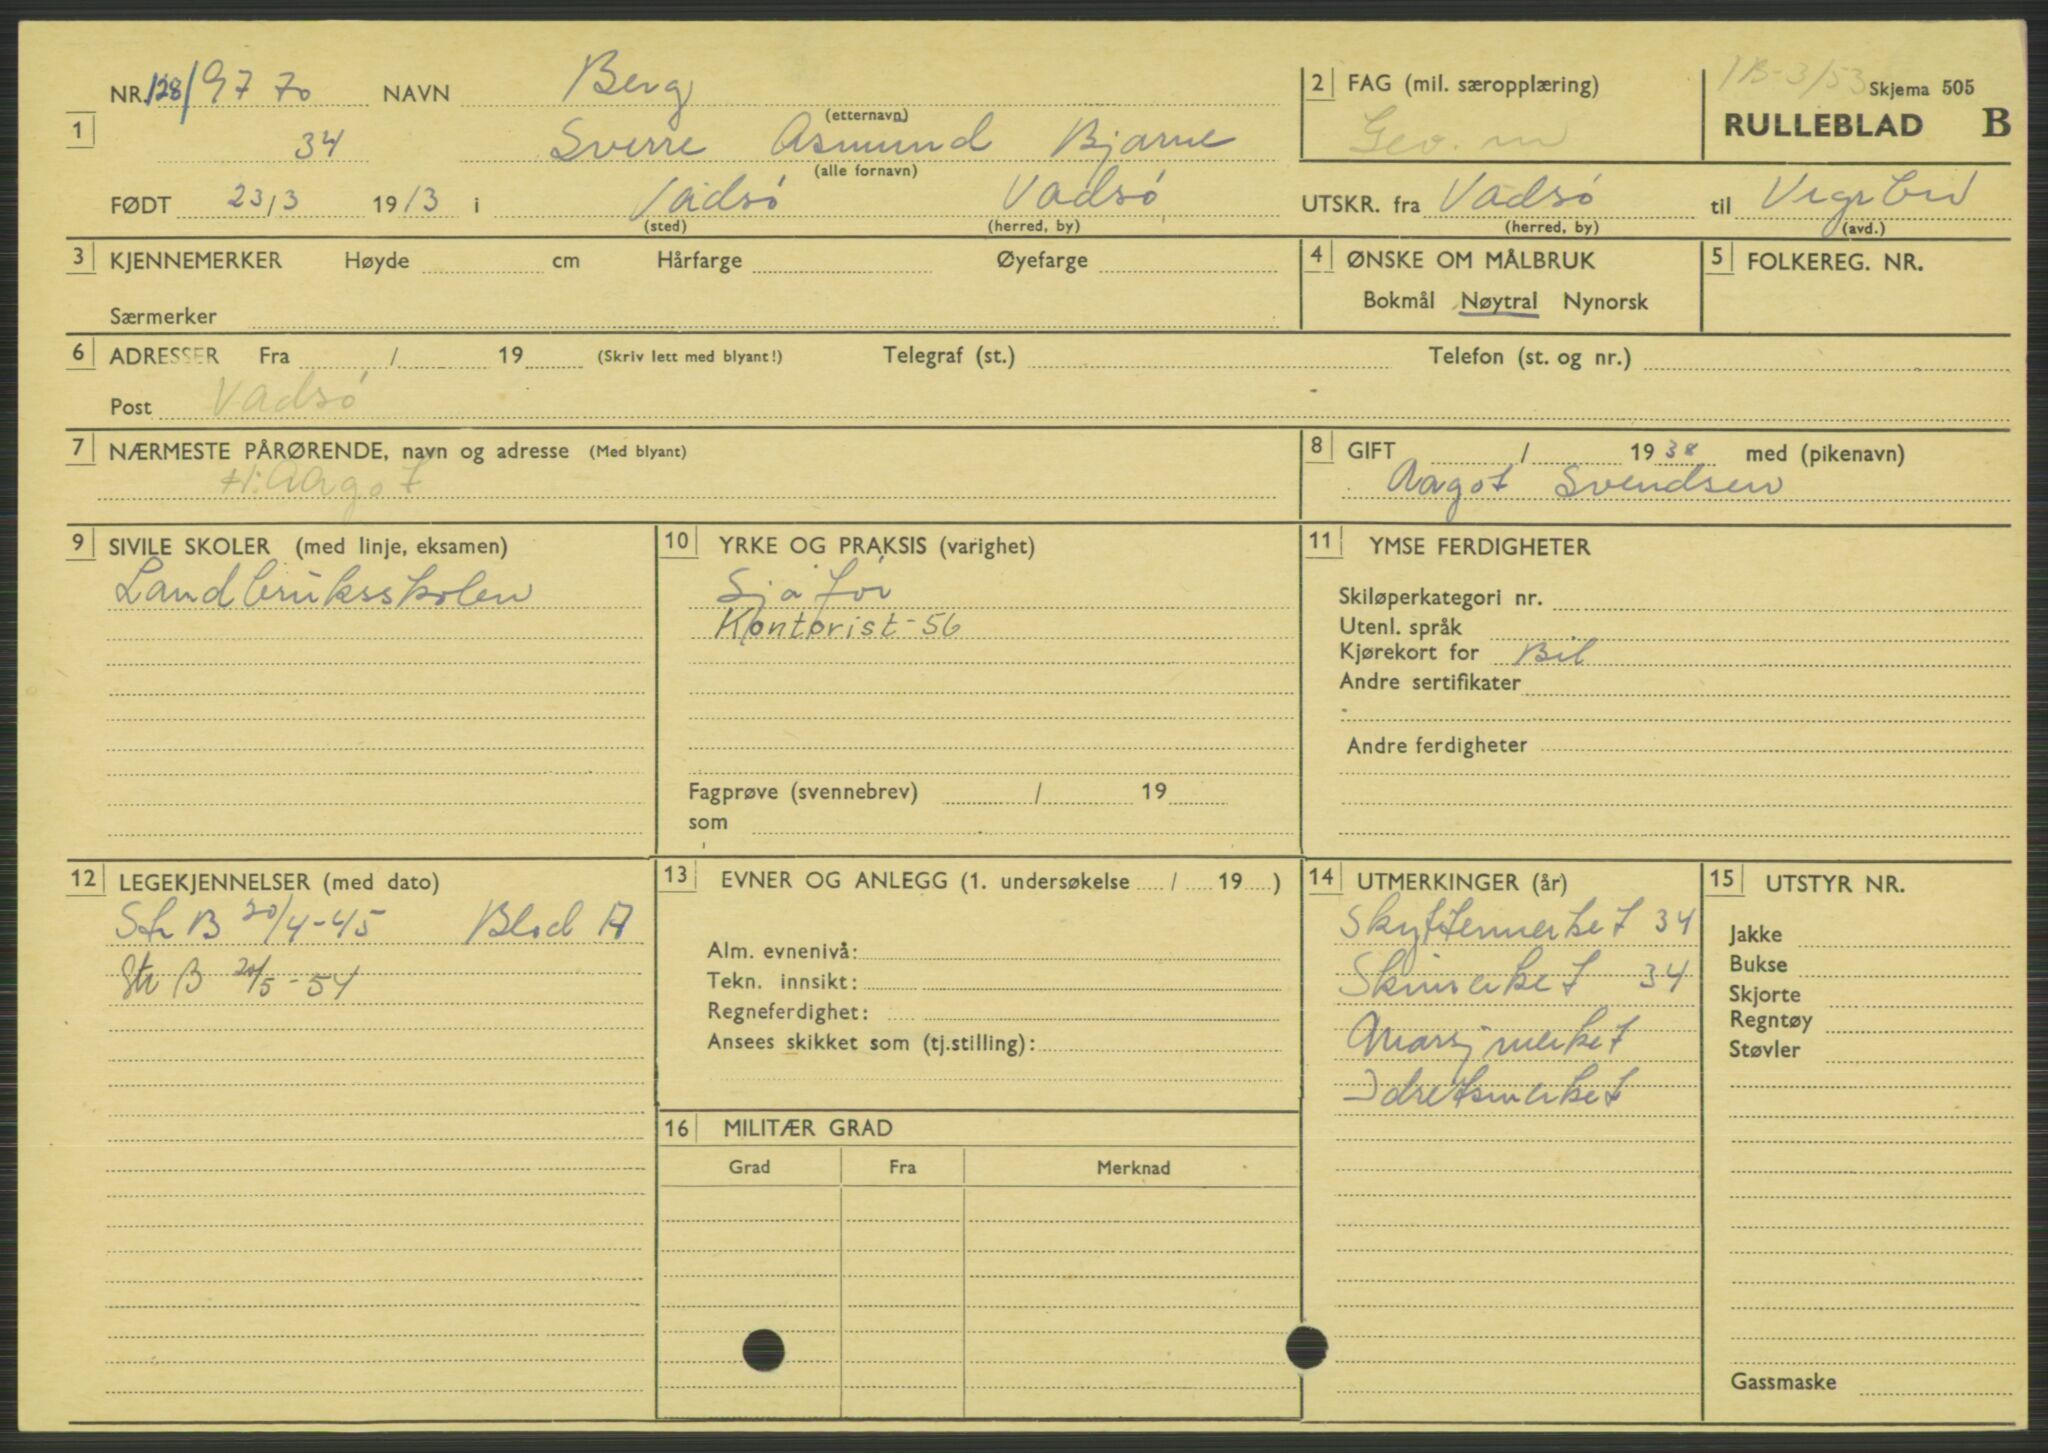 NR. 128/9770 NAVN Berg 2 FAG (mil. særopplæring) 1B-3/53 Skjema 505
(etternavn)
1 34 Sverre Asmund Bjarne Gev. m RULLEBLAD B
(alle fornavn)
FØDT 23/3 1913 i Vadsö Vadsö UTSKR. fra Vadsö til
(sted) (herred, by) (herred, by) (avd.)
3 KJENNEMERKER Høyde cm Hårfarge Øyefarge 4 ØNSKE OM MÅLBRUK 5 FOLKEREG. NR.
Bokmål Nøytral Nynorsk
Særmerker
6 ADRESSER Fra / 19 (Skriv lett med blyant!) Telegraf (st.) Telefon (st. og nr.)
Post Vadsö
7 NÆRMESTE PÅRØRENDE, navn og adresse (Med blyant) 8 GIFT / 1938 med (pikenavn)
H: Aagot Aagot Svendsen
9 SIVILE SKOLER (med linje, eksamen) 10 YRKE OG PRAKSIS (varighet) 11 YMSE FERDIGHETER
Landbruksskolen Sjåför Skiløperkategori nr.
Kontorist-56 Utenl. språk
Kjørekort for Bil
Andre sertifikater
Andre ferdigheter
Fagprøve (svennebrev) / 19
som
12 LEGEKJENNELSER (med dato) 13 EVNER OG ANLEGG (1. undersøkelse / 19 ) 14 UTMERKINGER (år) 15 UTSTYR NR.
Str B 20/4-45 Blod A Skyttermerket 34 Jakke
Alm. evnenivå: Bukse
Str B 20/5-54 Tekn. innsikt: Skimerket 34 Skjorte
Regneferdighet: Marsjmerket Regntøy
Ansees skikket som (tj.stilling): Støvler
Idretsmerket
16 MILITÆR GRAD
Grad Fra Merknad
Gassmaske